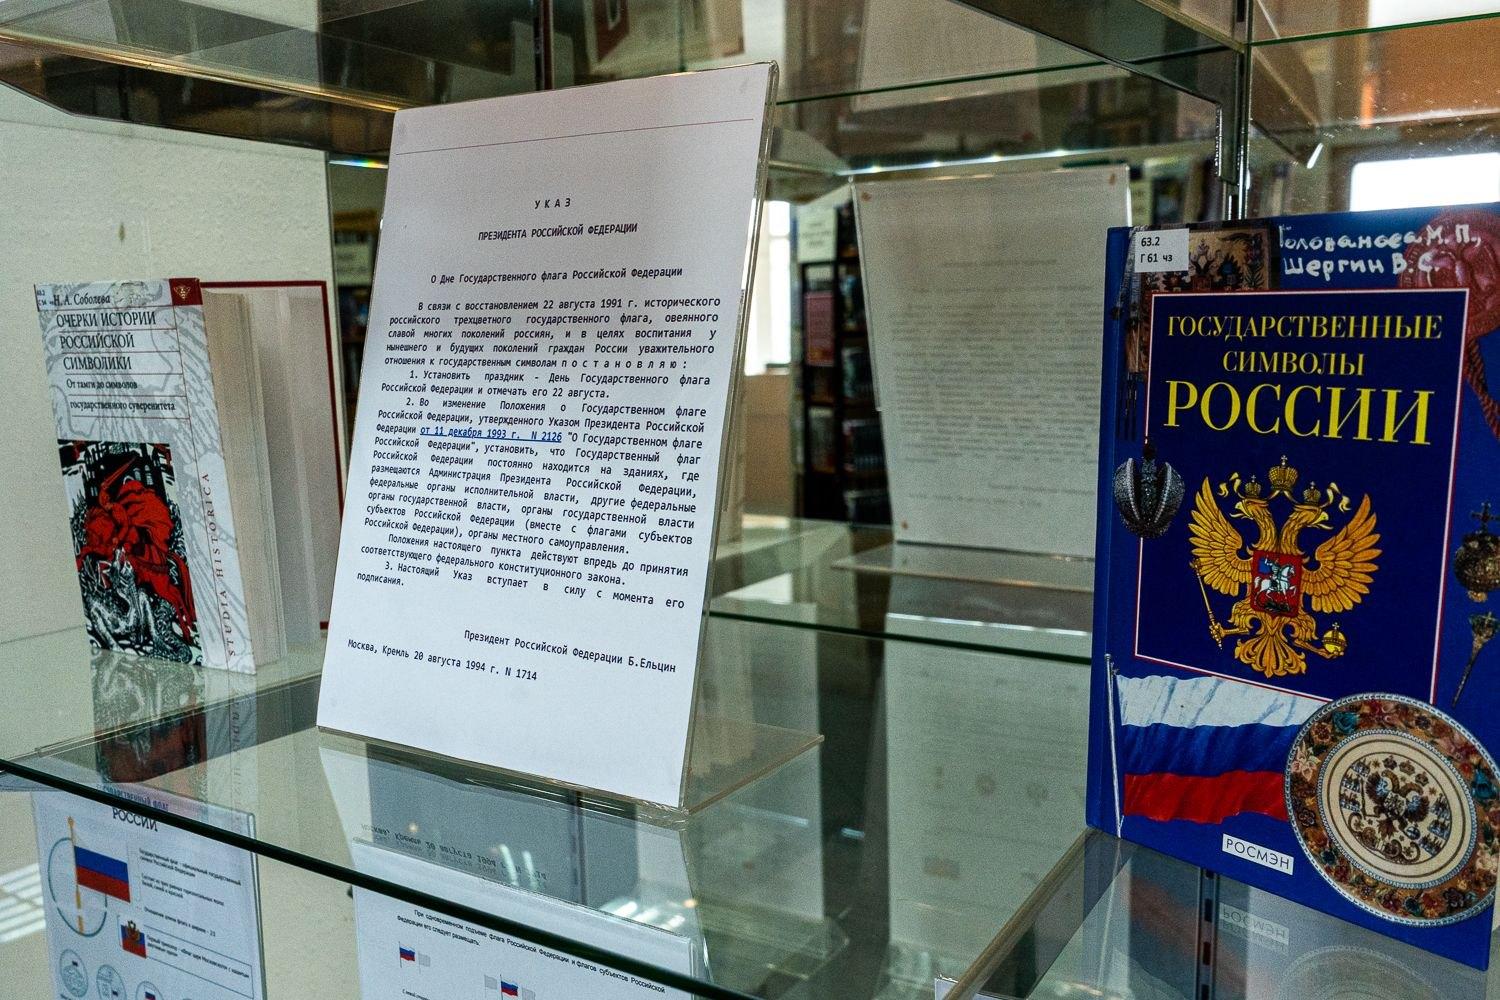 У К А З
ПРЕЗИДЕНТА РОССИЙСКОЙ ФЕДЕРАЦИИ
О Дне Государственного флага Российской Федерации
В связи с восстановлением 22 августа 1991 г. исторического
российского трехцветного государственного флага, овеянного
славой многих поколений россиян, и в целях воспитания у
нынешнего и будущих поколений граждан России уважительного
отношения к государственным символам п о с т а н о в л я ю :
1. Установить праздник - День Государственного флага
Российской Федерации и отмечать его 22 августа.
2. Во изменение Положения о Государственном флаге
Российской Федерации, утвержденного Указом Президента Российской
Федерации от 11 декабря 1993 г. N 2126 "О Государственном флаге
Российской Федерации", установить, что Государственный флаг
Российской Федерации постоянно находится на зданиях, где
размещаются Администрация Президента Российской Федерации,
федеральные органы исполнительной власти, другие федеральные
органы государственной власти, органы государственной власти
субъектов Российской Федерации (вместе с флагами субъектов
Российской Федерации), органы местного самоуправления.
Положения настоящего пункта действуют впредь до принятия
соответствующего федерального конституционного закона.
3. Настоящий Указ вступает в силу с момента его
подписания.
Президент Российской Федерации Б.Ельцин
Москва, Кремль 20 августа 1994 г. N 1714
Н. А. Соболева
ОЧЕРКИ ИСТОРИИ
РОССИЙСКОЙ
СИМВОЛИКИ
От тамги до символов
государственного суверенитета
STUDIA HISTORICA
63.2
Г 61 чз
Голованова М. П.,
Шергин В. С.
ГОСУДАРСТВЕННЫЕ
СИМВОЛЫ
РОССИИ
РОСМЭН
РОССИИ
Государственный флаг - официальный государственный
символ Российской Федерации
При одновременном подъеме флага Российской Федерации и флагов субъектов Российской
Федерации его следует размещать: